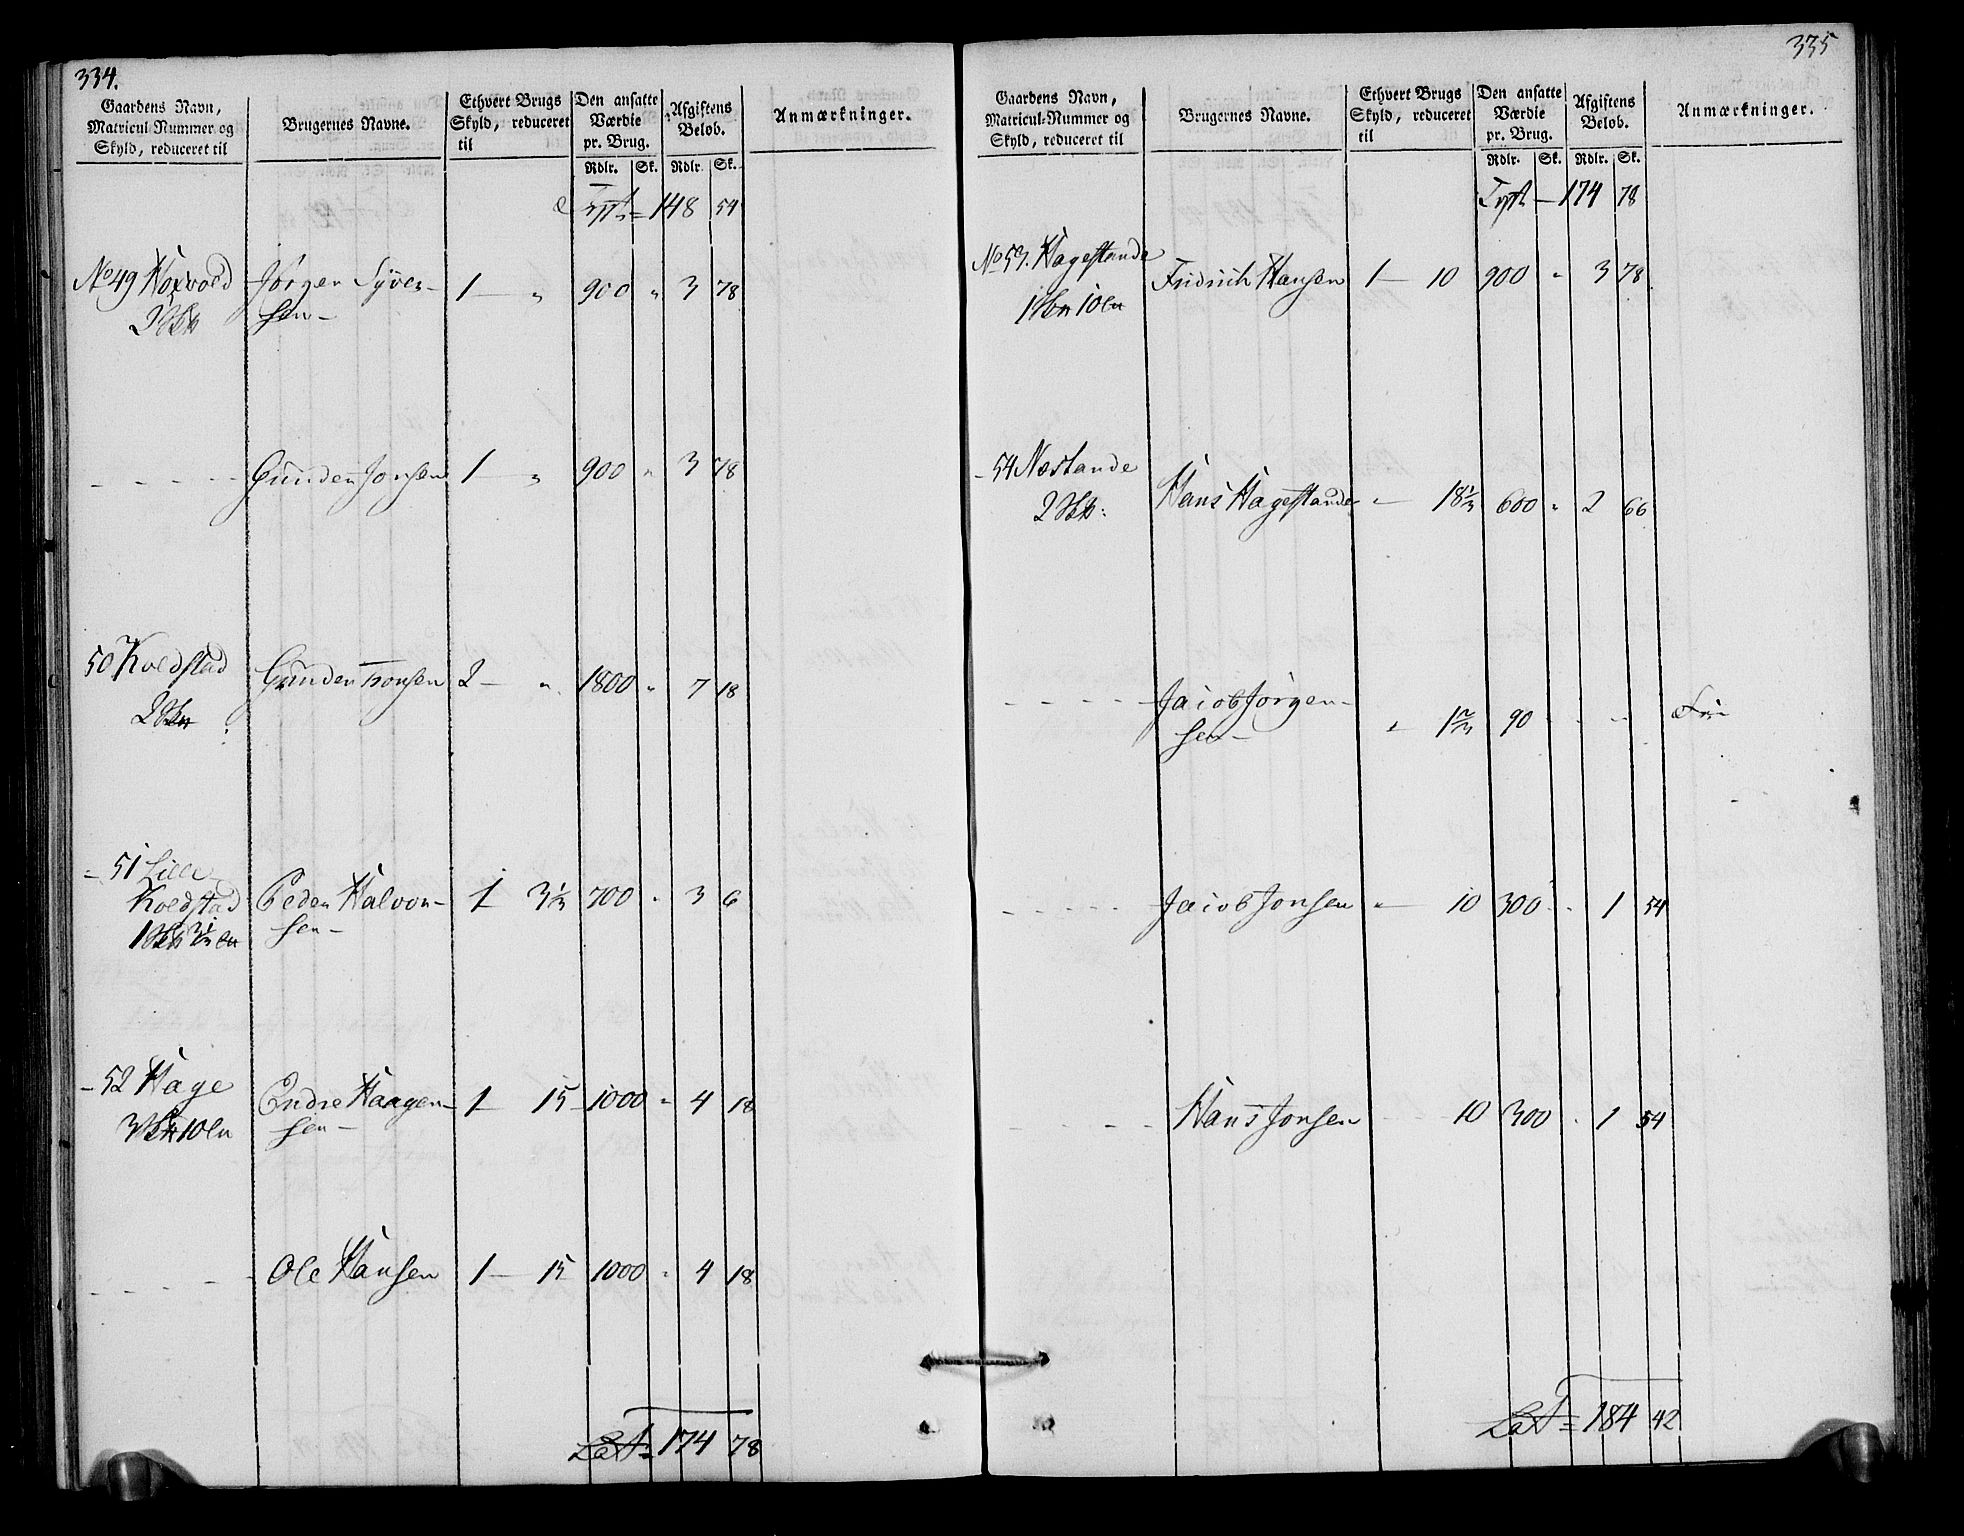 334.
Gaardens Navn,
Matricul-Nummer og
Skyld, reduceret til
Brugernes Navne.
Ethvert Brugs
Skyld, reduceret
til
Den ansatte
Værdie
pr. Brug.
Afgiftens
Beløb.
Anmærkninger.
Rdlr. Sk. Rdlr. Sk.
148 54
No 49
Jørgen Syver-
1 — " 900 " 3 78
2
sen —
- - - - - Gunder Jonsen 1 — " 900 " 3 78
50 Koldstad
Gunder 2 — " 1800 " 7 18
2
- 51 Lille
Koldstad Peder Halvor- 1 3 1/3 700 " 3 6
1 3 1/3
sen —
- 52 Hage
Endre Haagen- 1 — 15 1000 " 4 18
3 10
sen —
- - - - - Ole Hansen 1 — 15 1000 " 4 18
Lat = 174 78
335
Gaardens Navn,
Matricul-Nummer og
Skyld, reduceret til
Brugernes Navne.
Ethvert Brugs
Skyld, reduceret
til
Den ansatte
Værdie
pr. Brug.
Afgiftens
Beløb.
Anmærkninger.
Rdlr. Sk. Rdlr. Sk.
— 174 78
No 53. Hagestande
Fridrich Hansen 1 — 10 900 " 3 78
1 10
- 54 Næstande
Hans Hagestande " — 18 1/3 600 " 2 66
2
- - - - Jacob Jørgen-
sen — " 1 2/3 90 " " " Fri
- - - - - Jacob Jonsen " — 10 300 " 1 54
- - - - Hans Jonsen - - 10 300 " 1 54
Lat = 184 42